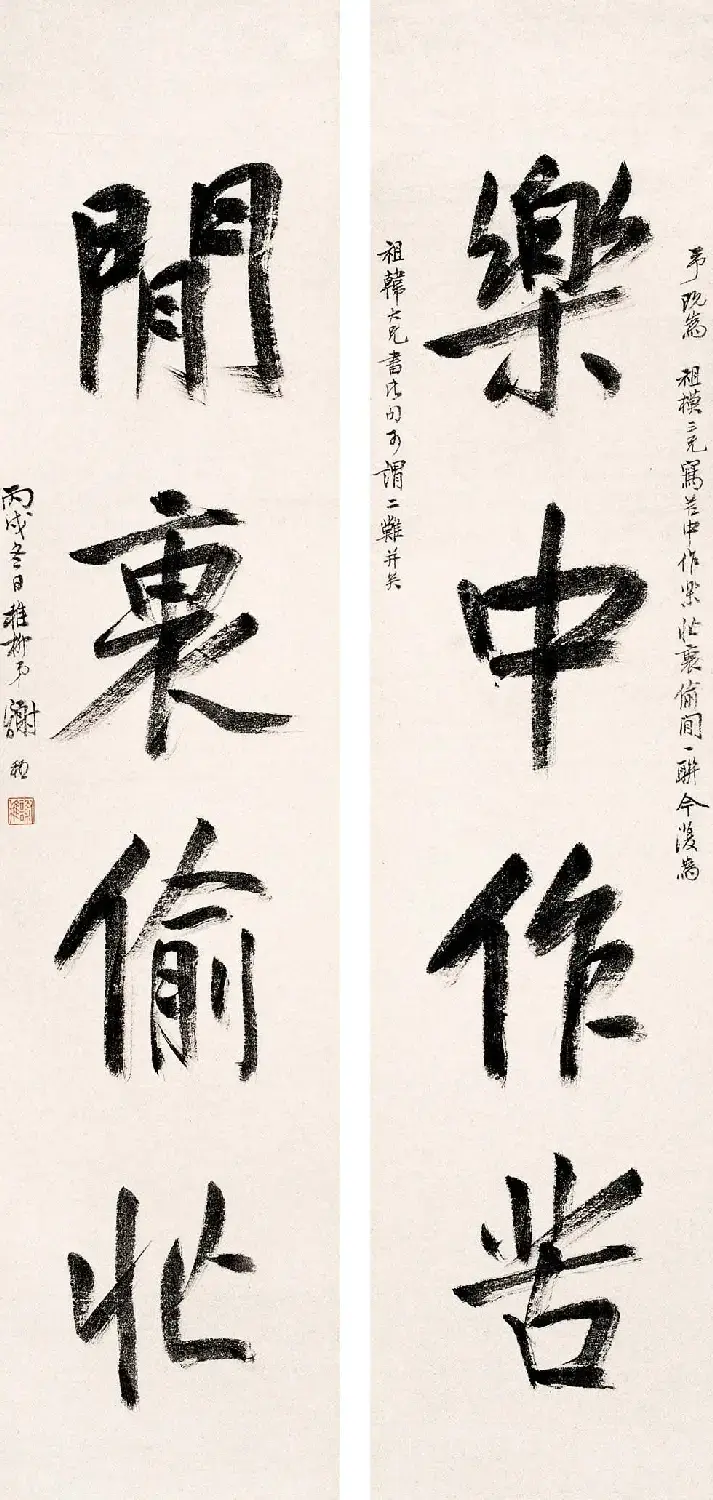 樂中作苦
予既爲 祖模三兄寫苦中作樂忙裏偷閒一聯今復爲
祖韓大兄書此可謂二難并矣
閒裏偷忙
丙戌冬日稚柳弟謝稚